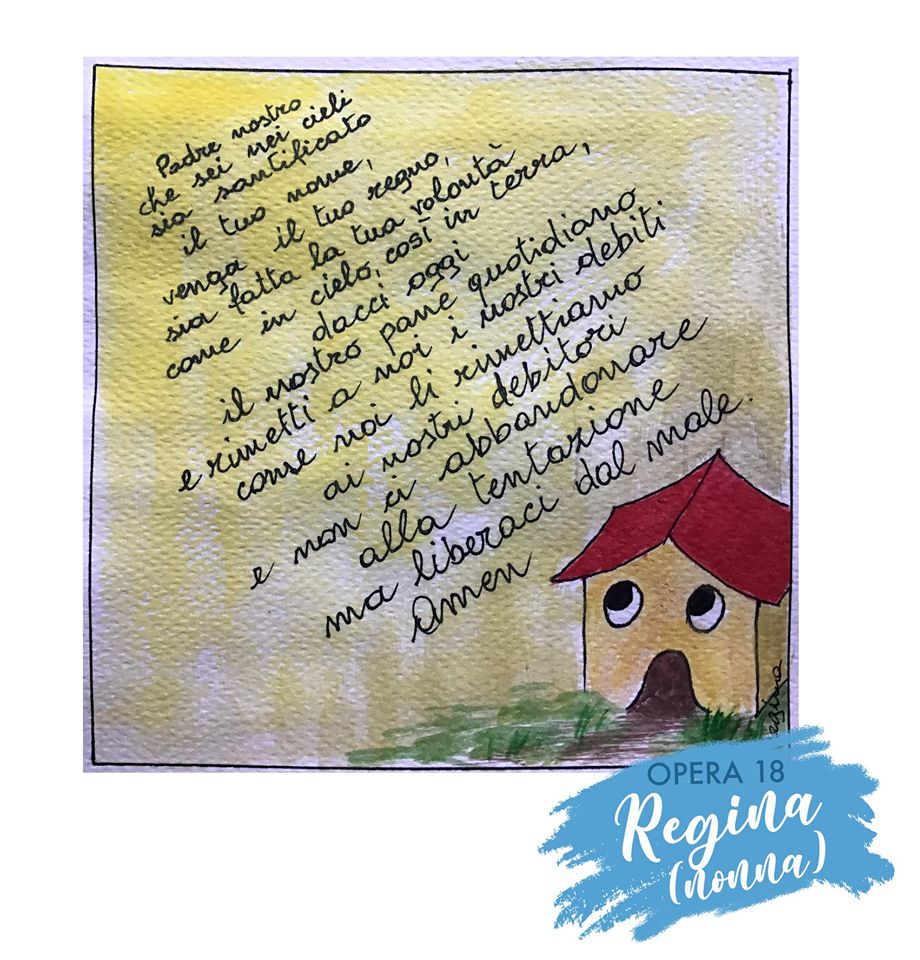 Padre nostro
che sei nei cieli
sia santificato
il tuo nome,
venga il tuo regno,
sia fatta la tua volontà
come in cielo, così in terra,
dacci oggi
il nostro pane quotidiano
e rimetti a noi i nostri debiti
come noi li rimettiamo
ai nostri debitori
e non ci abbandonare
alla tentazione
ma liberaci dal male.
Amen
egina
OPERA 18
Regina
(nonna)